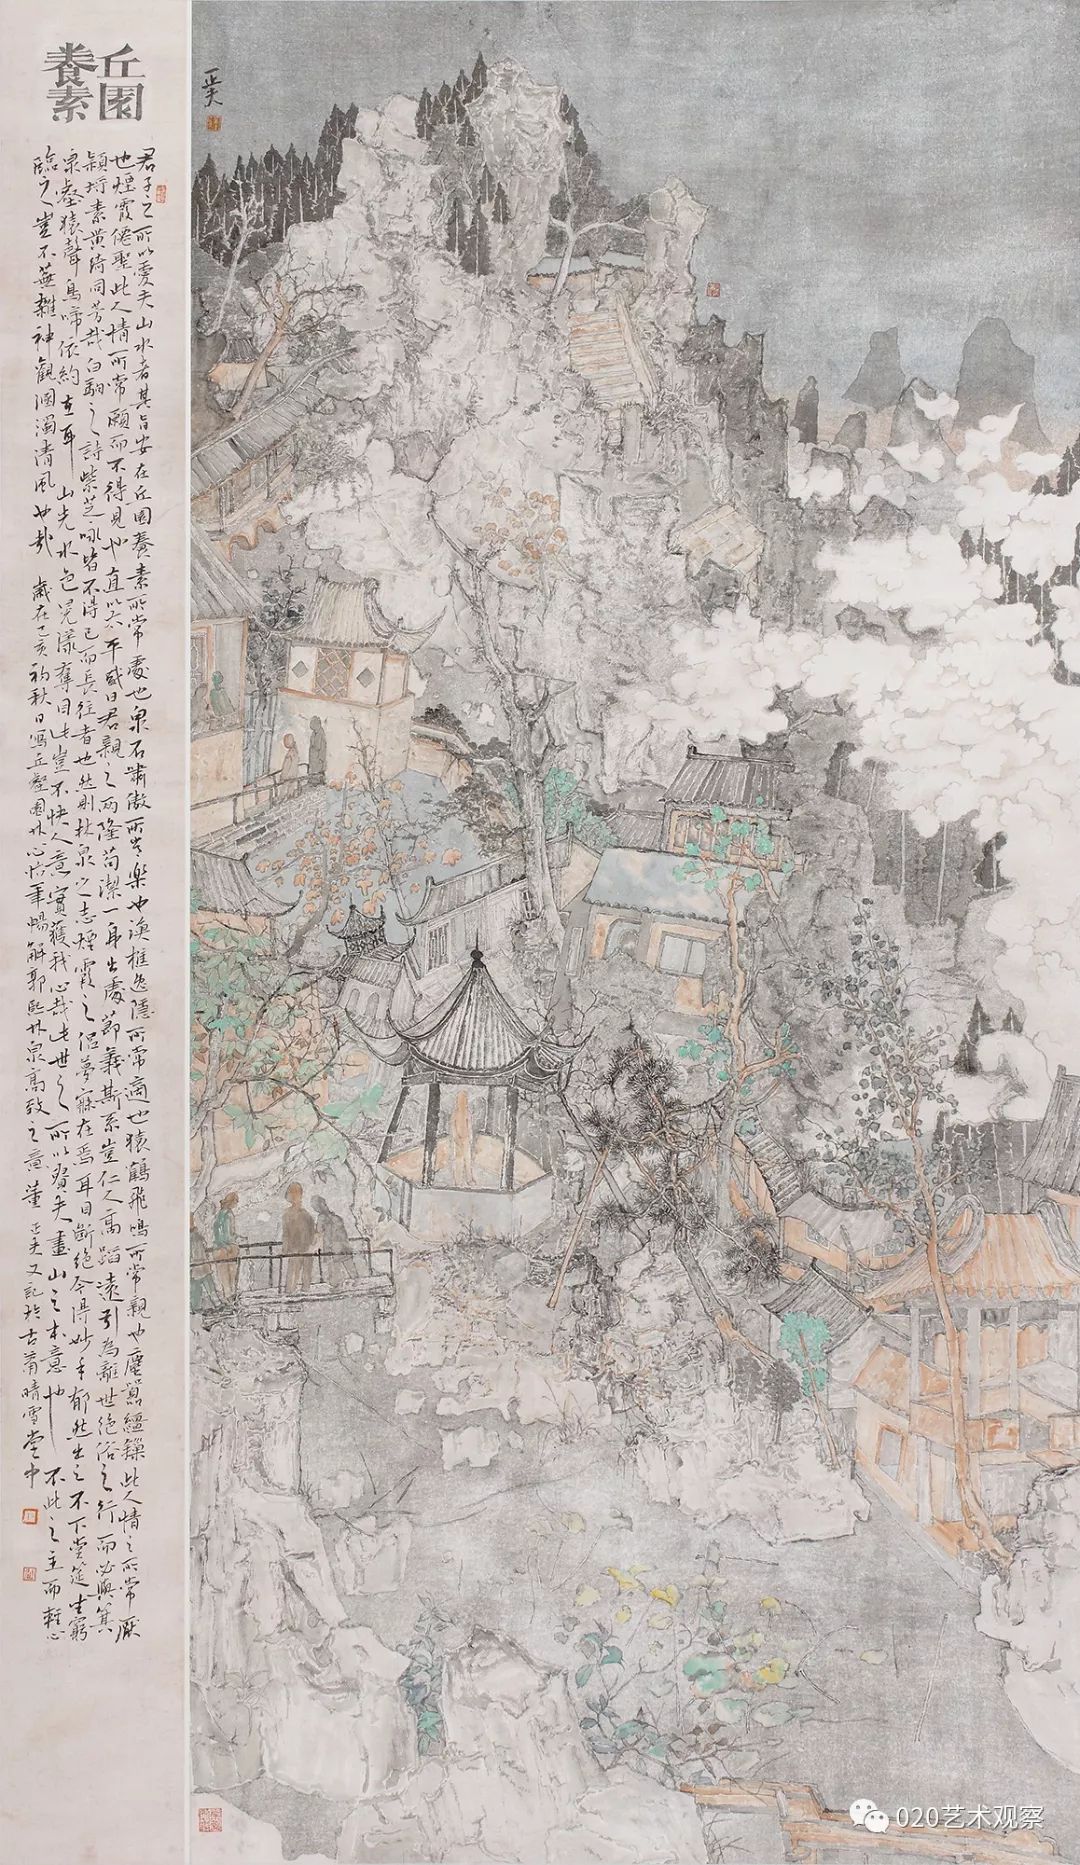 丘園
養素
君子之所以愛夫山水者其旨安在丘園養素所常處也泉石嘯傲所常樂也漁樵逸隱所常適也猿鶴飛鳴所常親也塵囂繮鎖此人情之所常厭
也煙霞僊聖此人情所常願而不得見也直以太平盛日君親之兩隆苟潔一身出處節義斯系豈仁人高蹈遠引為離世絕俗之行而必與箕
潁埒素黃綺同芳哉白駒之詩紫芝詠皆不得已而長往者也然則林泉之志煙霞之侶夢寐在焉耳目斷絕今得妙手郁然出之不下堂筵坐窮
泉壑猿聲鳥啼依約在耳山光水色晃漾奪目此豈不快人意實獲我心哉此世之所以貴夫畫山之本意也不此之主而輕心
臨之豈不蕪雜神觀溷濁清風也哉 歲在己亥初秋日寫丘壑園林心怡筆暢解郭熙林泉高致之意董正夫又記於古莆晴雪堂中
正夫
020艺术观察